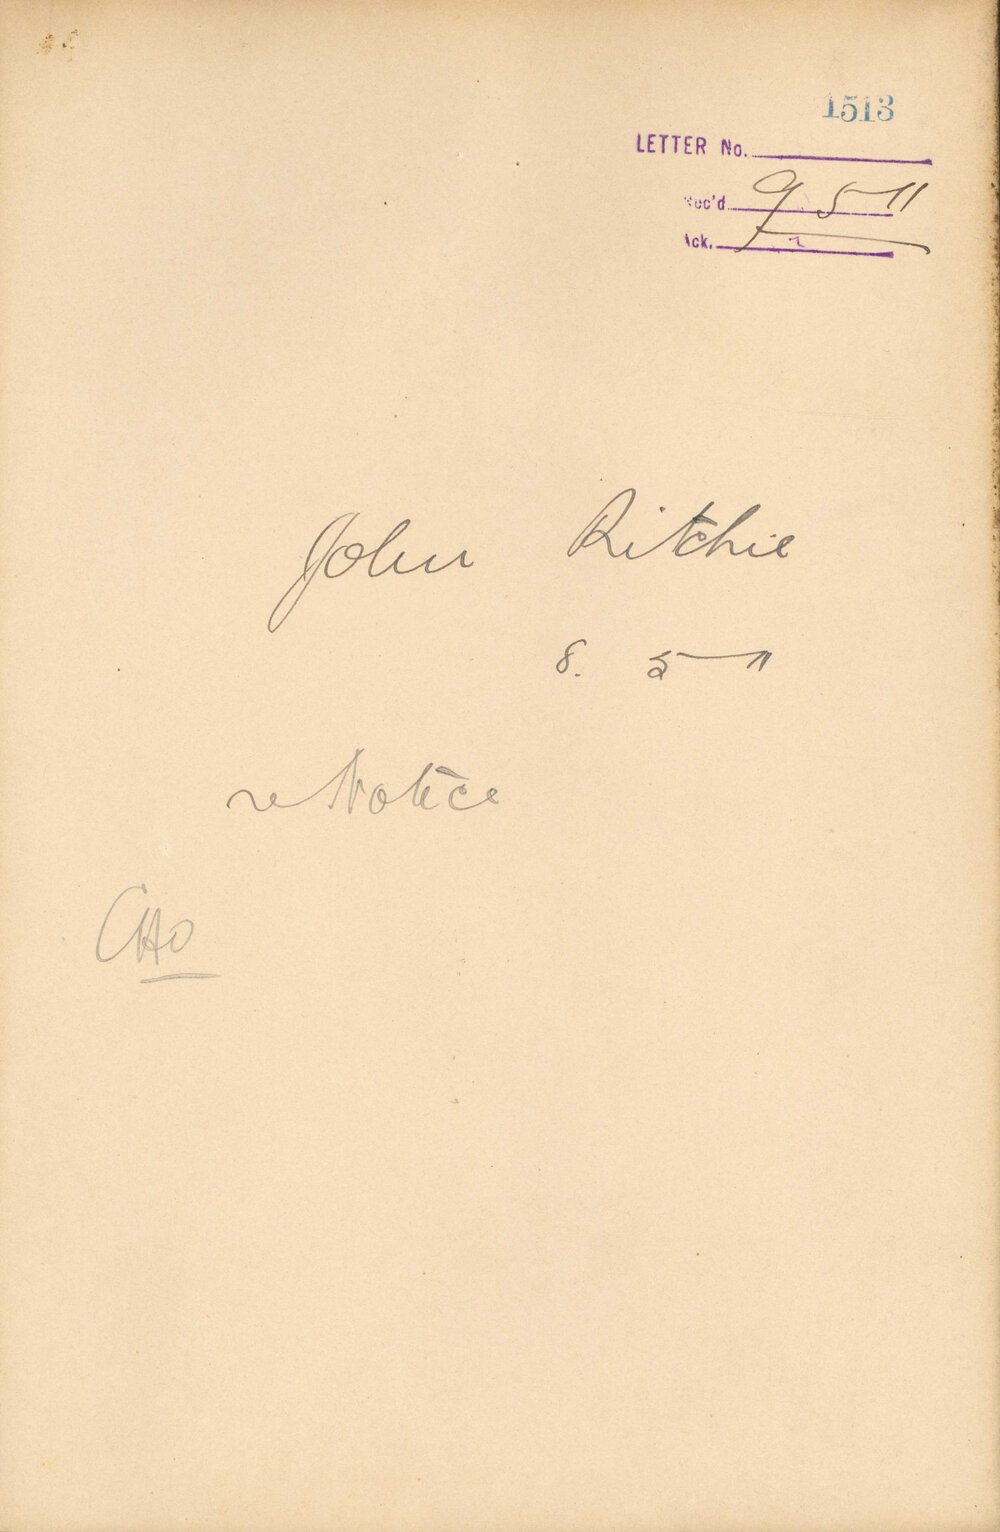 1513
LETTER No.
Rec'd 9 5 11
Ack.
John Ritchie
8. 5 11
re Notice
CHO